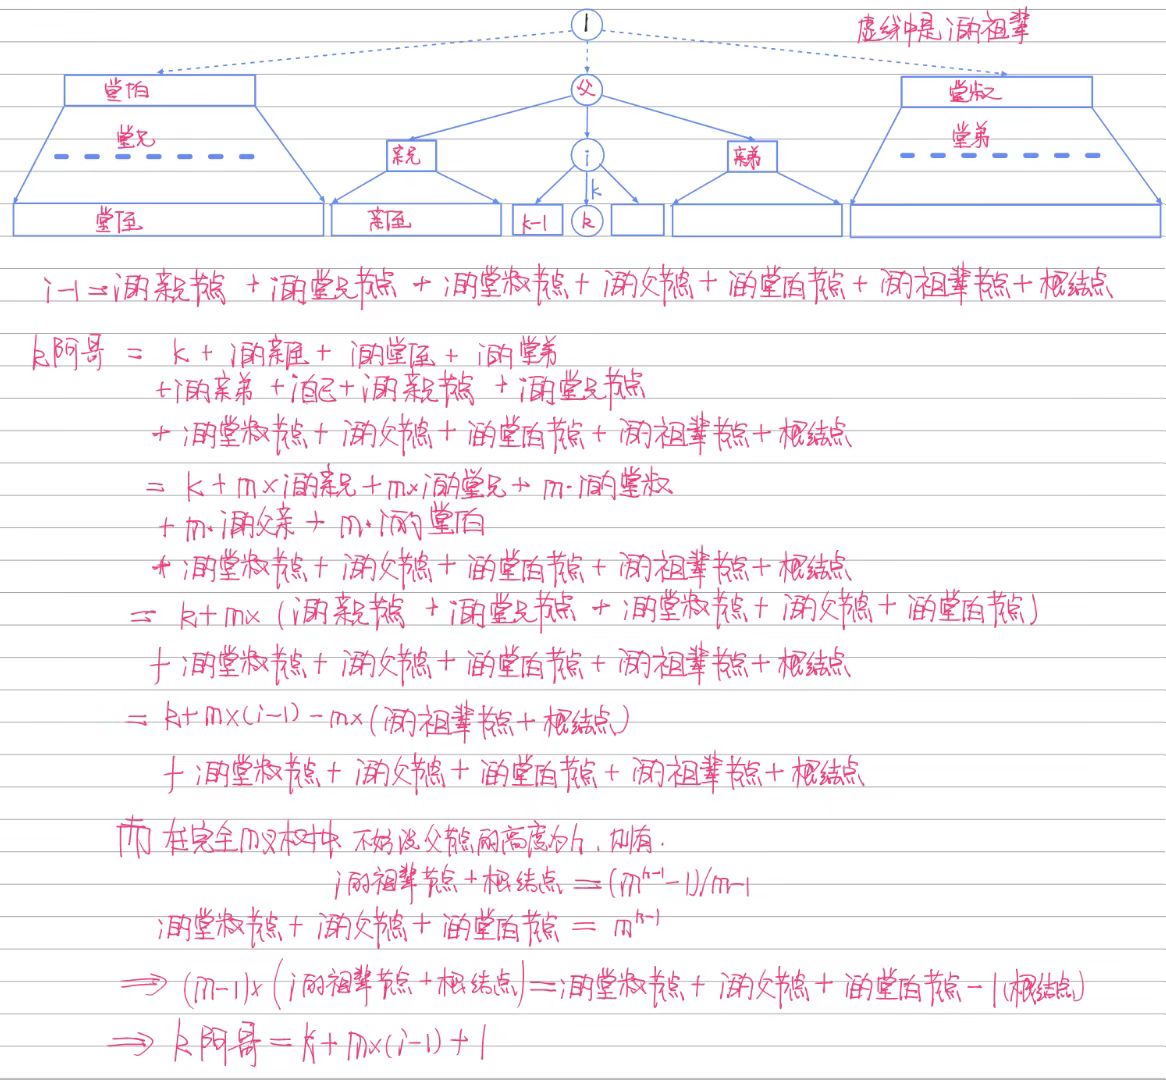 1
虚线中是i的祖辈
堂伯
父
堂叔
堂兄
堂弟
亲兄
i
亲弟
k
堂侄
亲侄
k-1
k
i-1=i的亲兄节点 + i的堂兄节点 + i的堂叔节点 + i的父节点 + i的堂伯节点 + i的祖辈节点 + 根结点
k阿哥 = k + i的亲侄 + i的堂侄 + i的堂弟
+i的亲弟 + i自己 + i的亲兄节点 + i的堂兄节点
+ i的堂叔节点 + i的父节点 + i的堂伯节点 + i的祖辈节点 + 根结点
= k + m×i的亲兄 + m×i的堂兄 + m·i的堂叔
+ m·i的父亲 + m·i的堂伯
+ i的堂叔节点 + i的父节点 + i的堂伯节点 + i的祖辈节点 + 根结点
= k+m×(i的亲兄节点 + i的堂兄节点 + i的堂叔节点 + i的父节点 + i的堂伯节点)
+ i的堂叔节点 + i的父节点 + i的堂伯节点 + i的祖辈节点 + 根结点
= k+m×(i-1) - m×(i的祖辈节点 + 根结点)
+ i的堂叔节点 + i的父节点 + i的堂伯节点 + i的祖辈节点 + 根结点
而 在完全m叉树中 不妨设父节点的高度为h, 则有.
i的祖辈节点 + 根结点 = (m^(h-1)-1)/m-1
i的堂叔节点 + i的父节点 + i的堂伯节点 = m^(h-1)
⟹ (m-1)×(i的祖辈节点+根结点)=i的堂叔节点 + i的父节点 + i的堂伯节点 - 1(根结点)
⟹ k阿哥 = k+m×(i-1)+1